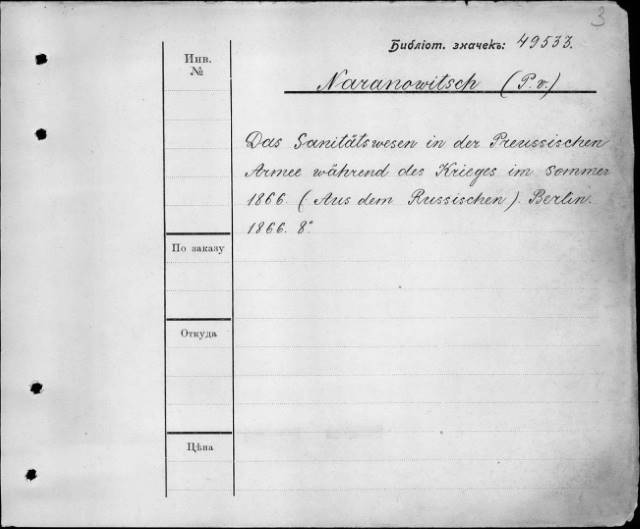 3
Библіот. значекъ: 49533.
Инв.
№
Naranowitsch (P. v.)
Das Sanitätswesen in der Preussischen
Armee während des Krieges im Sommer
1866. (Aus dem Russischen). Berlin.
1866. 8°
По заказу
Откуда
Цѣна